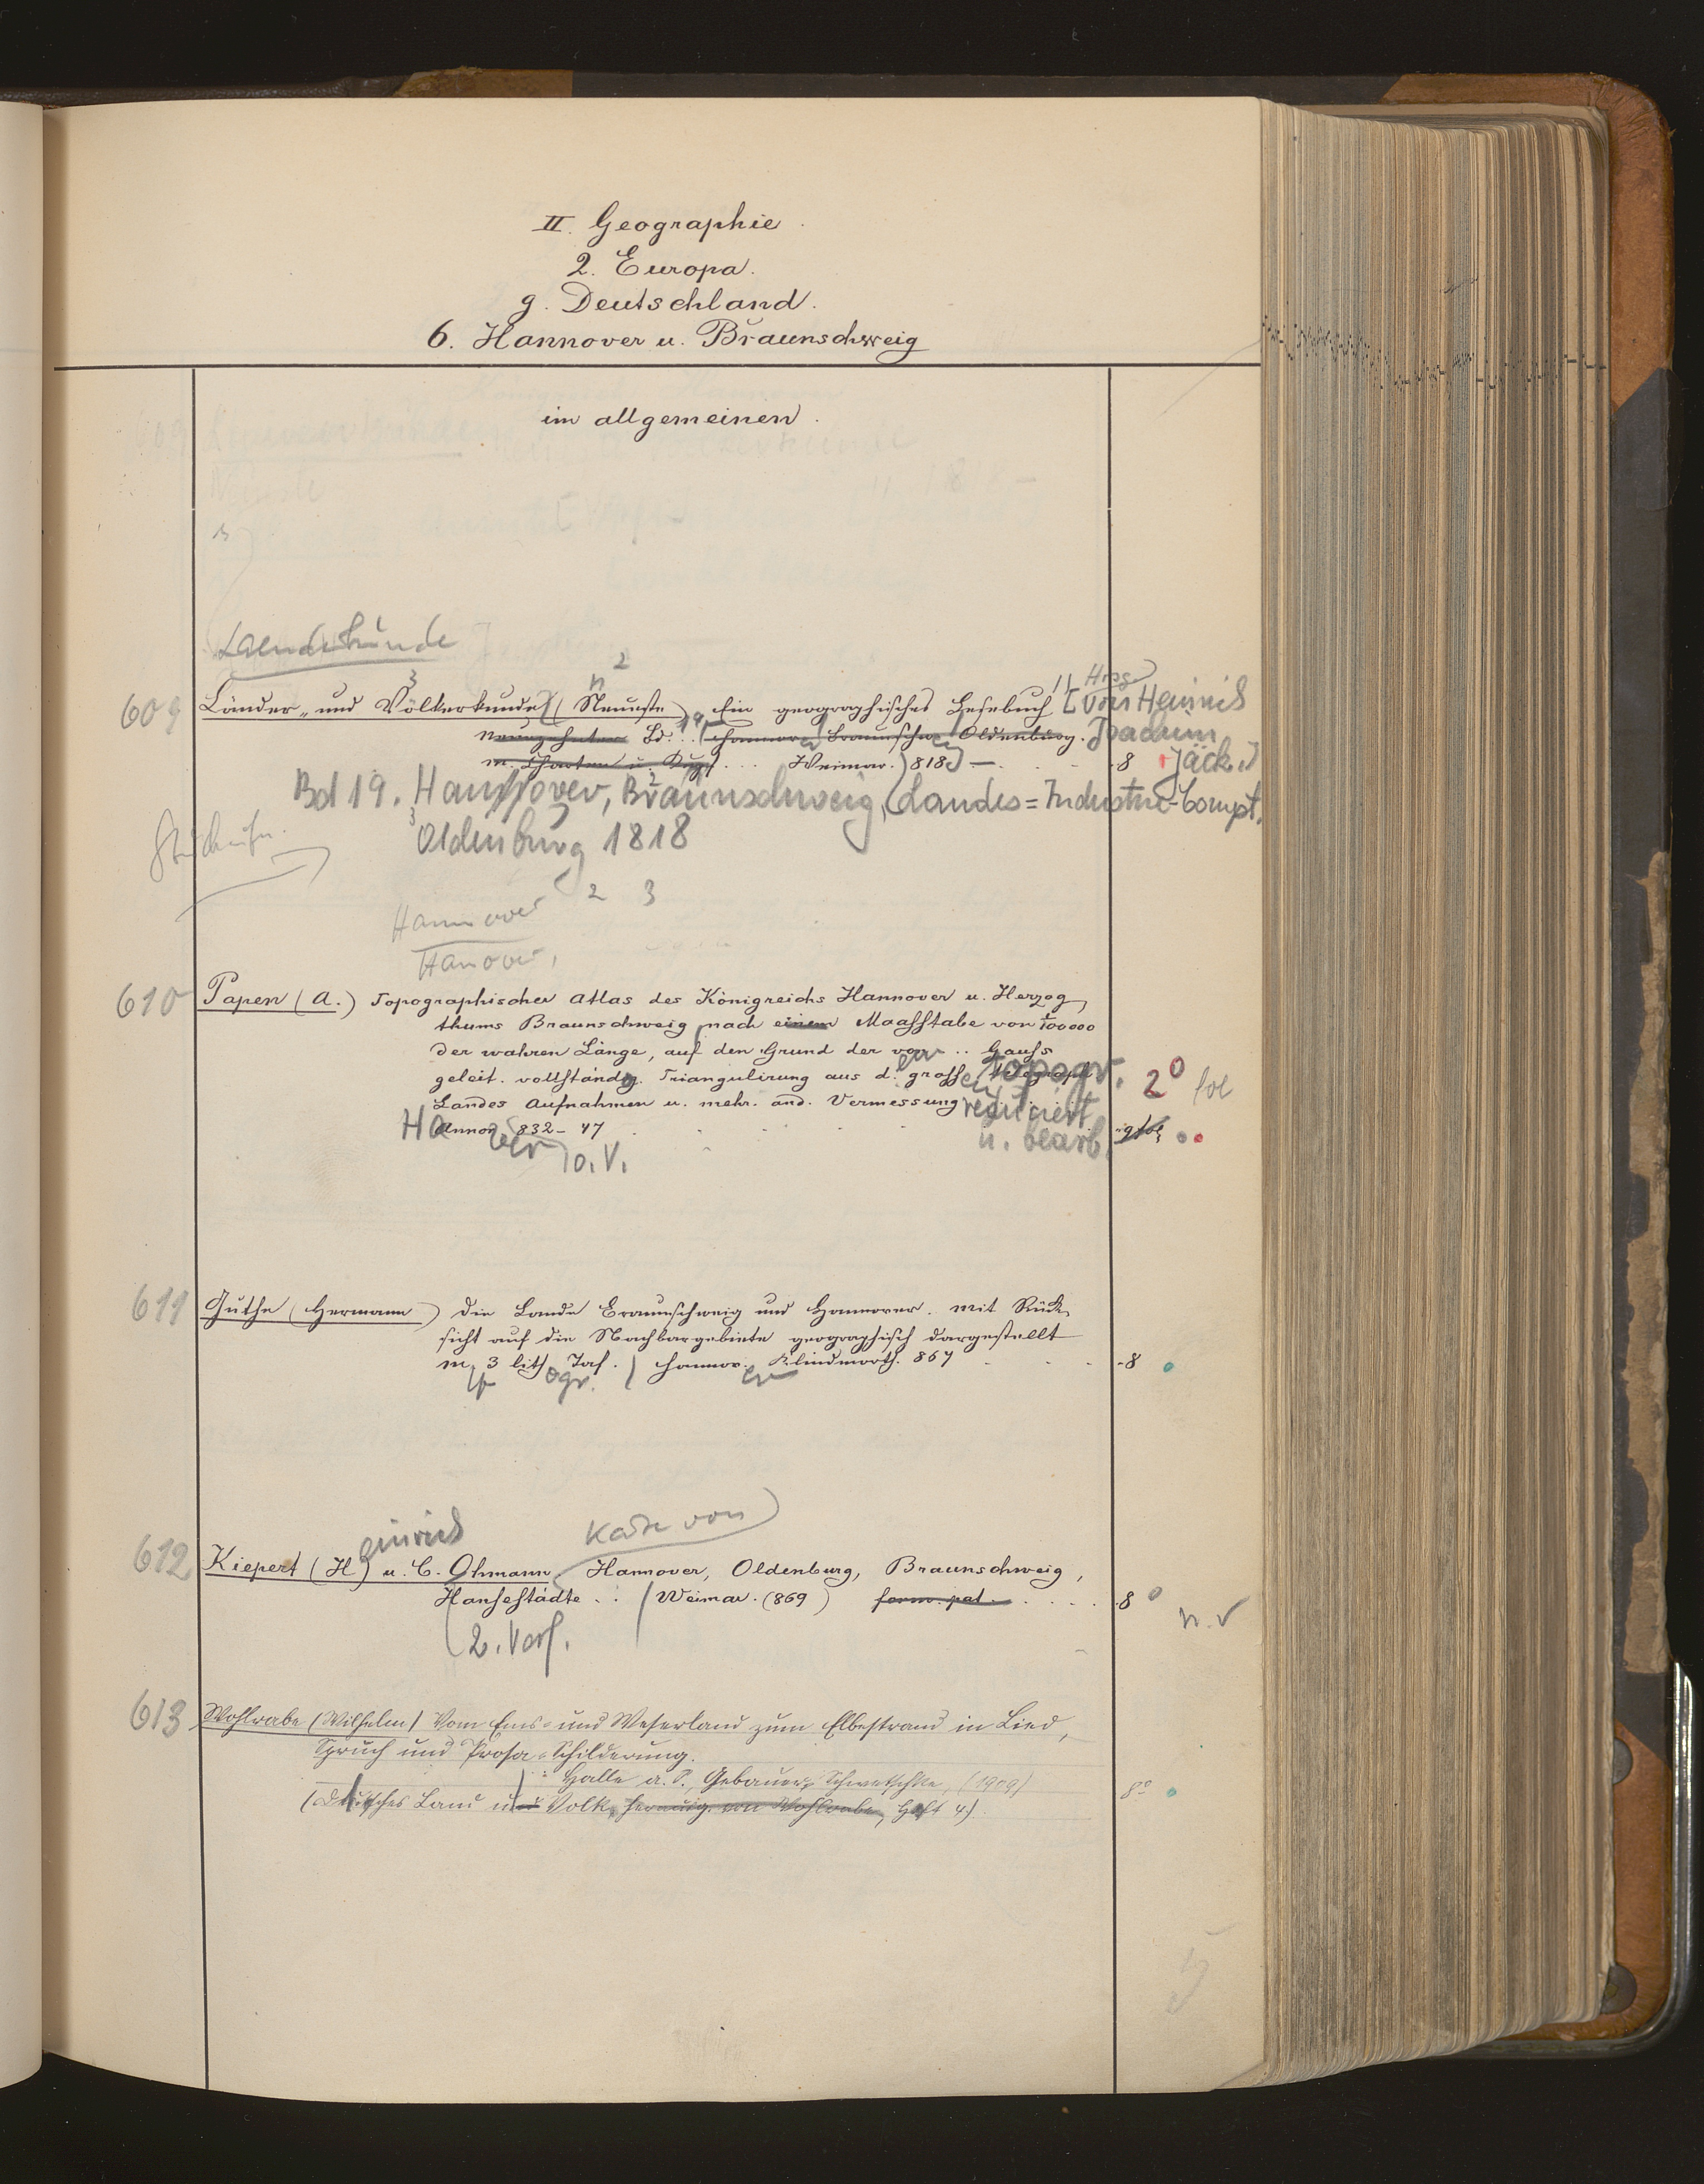 II. Geographie
2. Europa.
g. Deutschland.
6. Hannover u. Braunschweig
im allgemeinen.
Laenderkunde
2
3 n Hrsg
609 Länder- und Völkerkunde (Neueste) Ein geographisches Lesebuch [von Heinrich
neunzehnter Bd. 19 (Hannover Braunschw. Oldenburg. Joachim
m. Charten u. Kupf. ... Weimar. 818 — 8 Jäck.]
Bd 19. Hannover, Braunschweig, Landes=Industrie-Compt.
Oldenburg 1818
Hannover 2 3
Hanover,
610 Papen (A.) Topographischer Atlas des Königreichs Hannover u. Herzog
thums Braunschweig nach einem Maasstabe von 1/100000
der wahren Länge, auf den Grund der von .. Gauss
geleit. vollständig. Triangulirung aus d. gross. topogr. 2° fol
Landes Aufnahmen u. mehr. and. Vermessung reduciert
Hannover 832–47 u. bearb.
o.V.
611 Guthe (Hermann) Die Lande Braunschweig und Hannover. Mit Rück
sicht auf die Nachbargebiete geographisch dargestellt
m 3 lithogr. Taf. Hannover Klindworth. 867 8
einrich Karte von
612 Kiepert (H) u. C. Ohmann Hannover, Oldenburg, Braunschweig,
Hansestädte .. Weimar. (869) form. pat. 8°
n. v
2. Verf.
613 Wohlrabe (Wilhelm) Vom Ems- und Weserland zum Elbestrand in Lied,
Spruch und Prosa-Schilderung.
Halle a. S., Gebauer-Schwetschke, (1909)
(Deutsches Land und Volk, herausg. von Wohlrabe, Heft 4) 8°